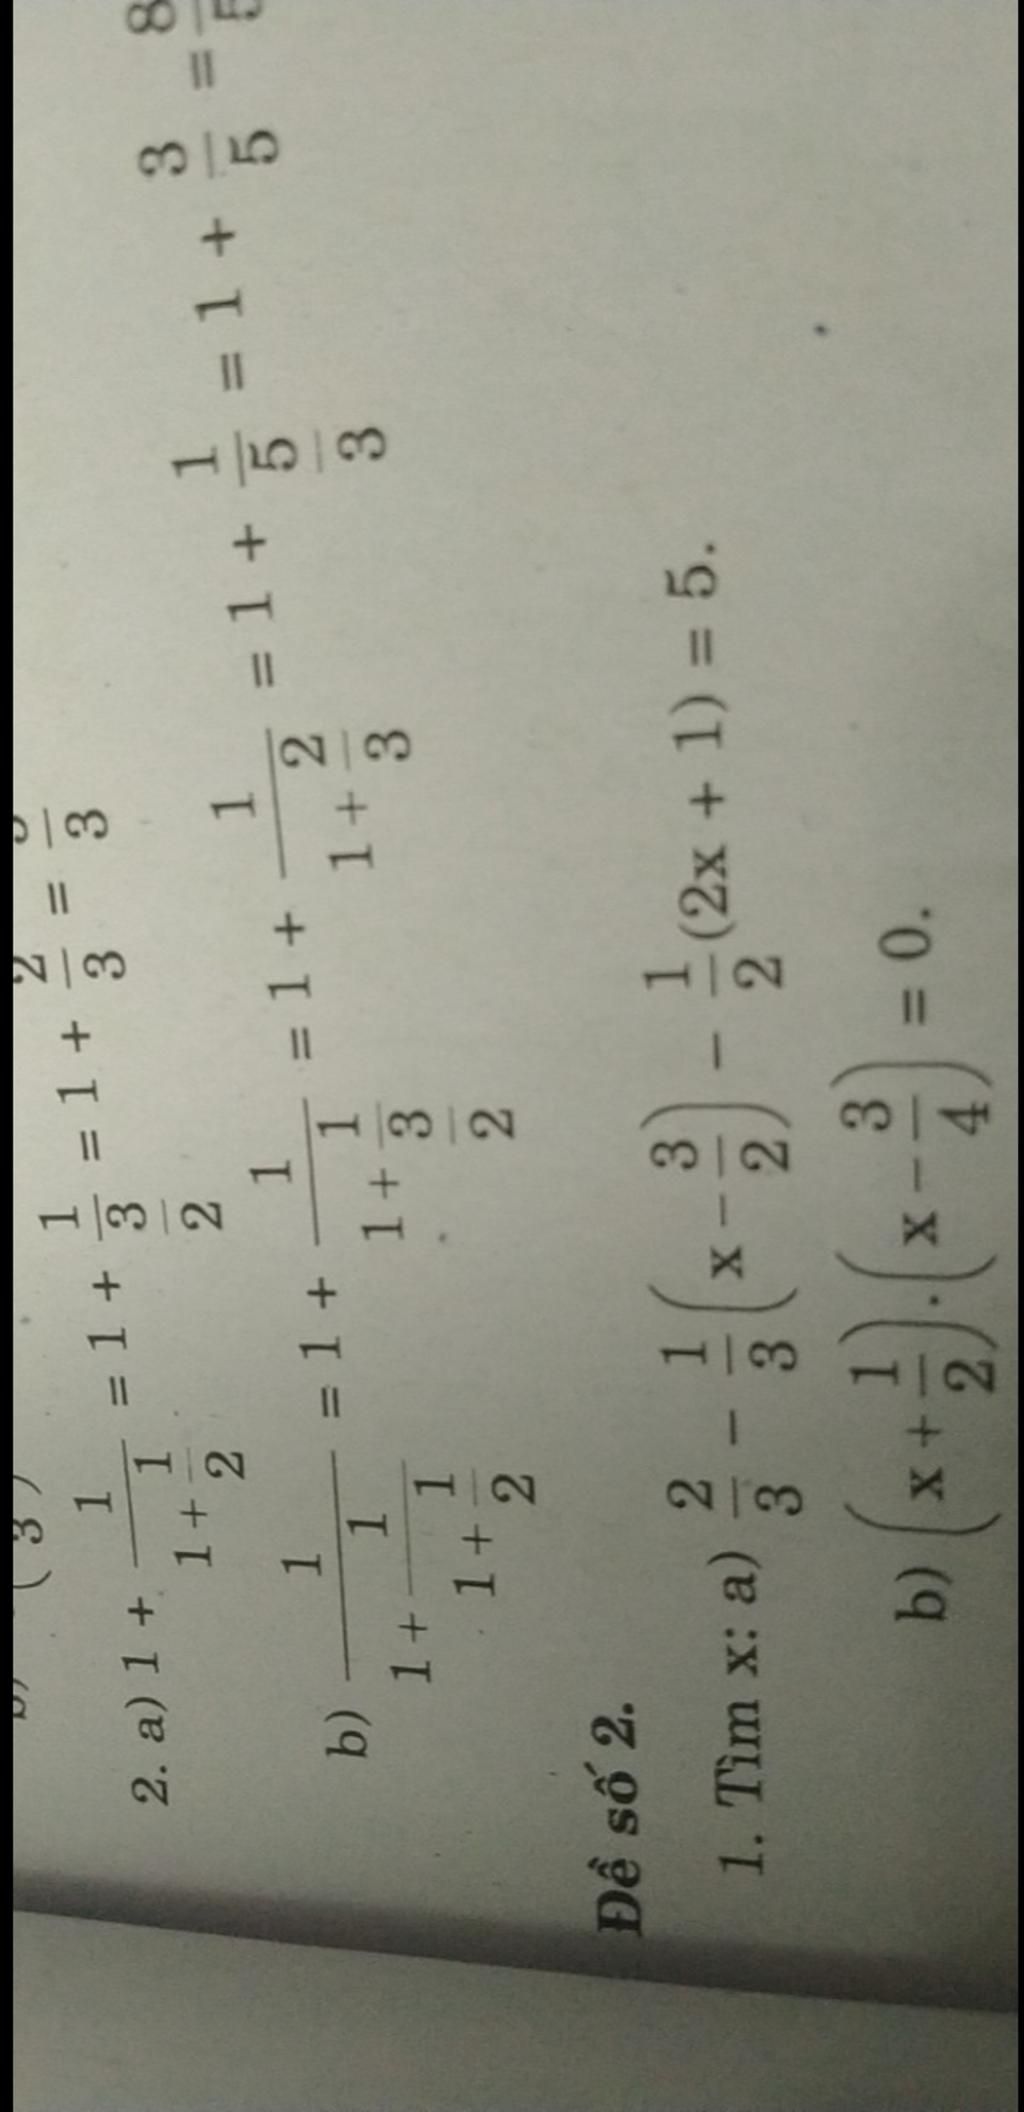 2. a) 1 + 1/(1 + 1/2) = 1 + 1/(3/2) = 1 + 2/3 = /3
b) 1/(1 + 1/(1 + 1/2)) = 1 + 1/(1 + 1/(3/2)) = 1 + 1/(1 + 2/3) = 1 + 1/(5/3) = 1 + 3/5 = 8/5
Đề số 2.
1. Tìm x: a) 2/3 − 1/3(x − 3/2) − 1/2(2x + 1) = 5.
b) (x + 1/2).(x − 3/4) = 0.